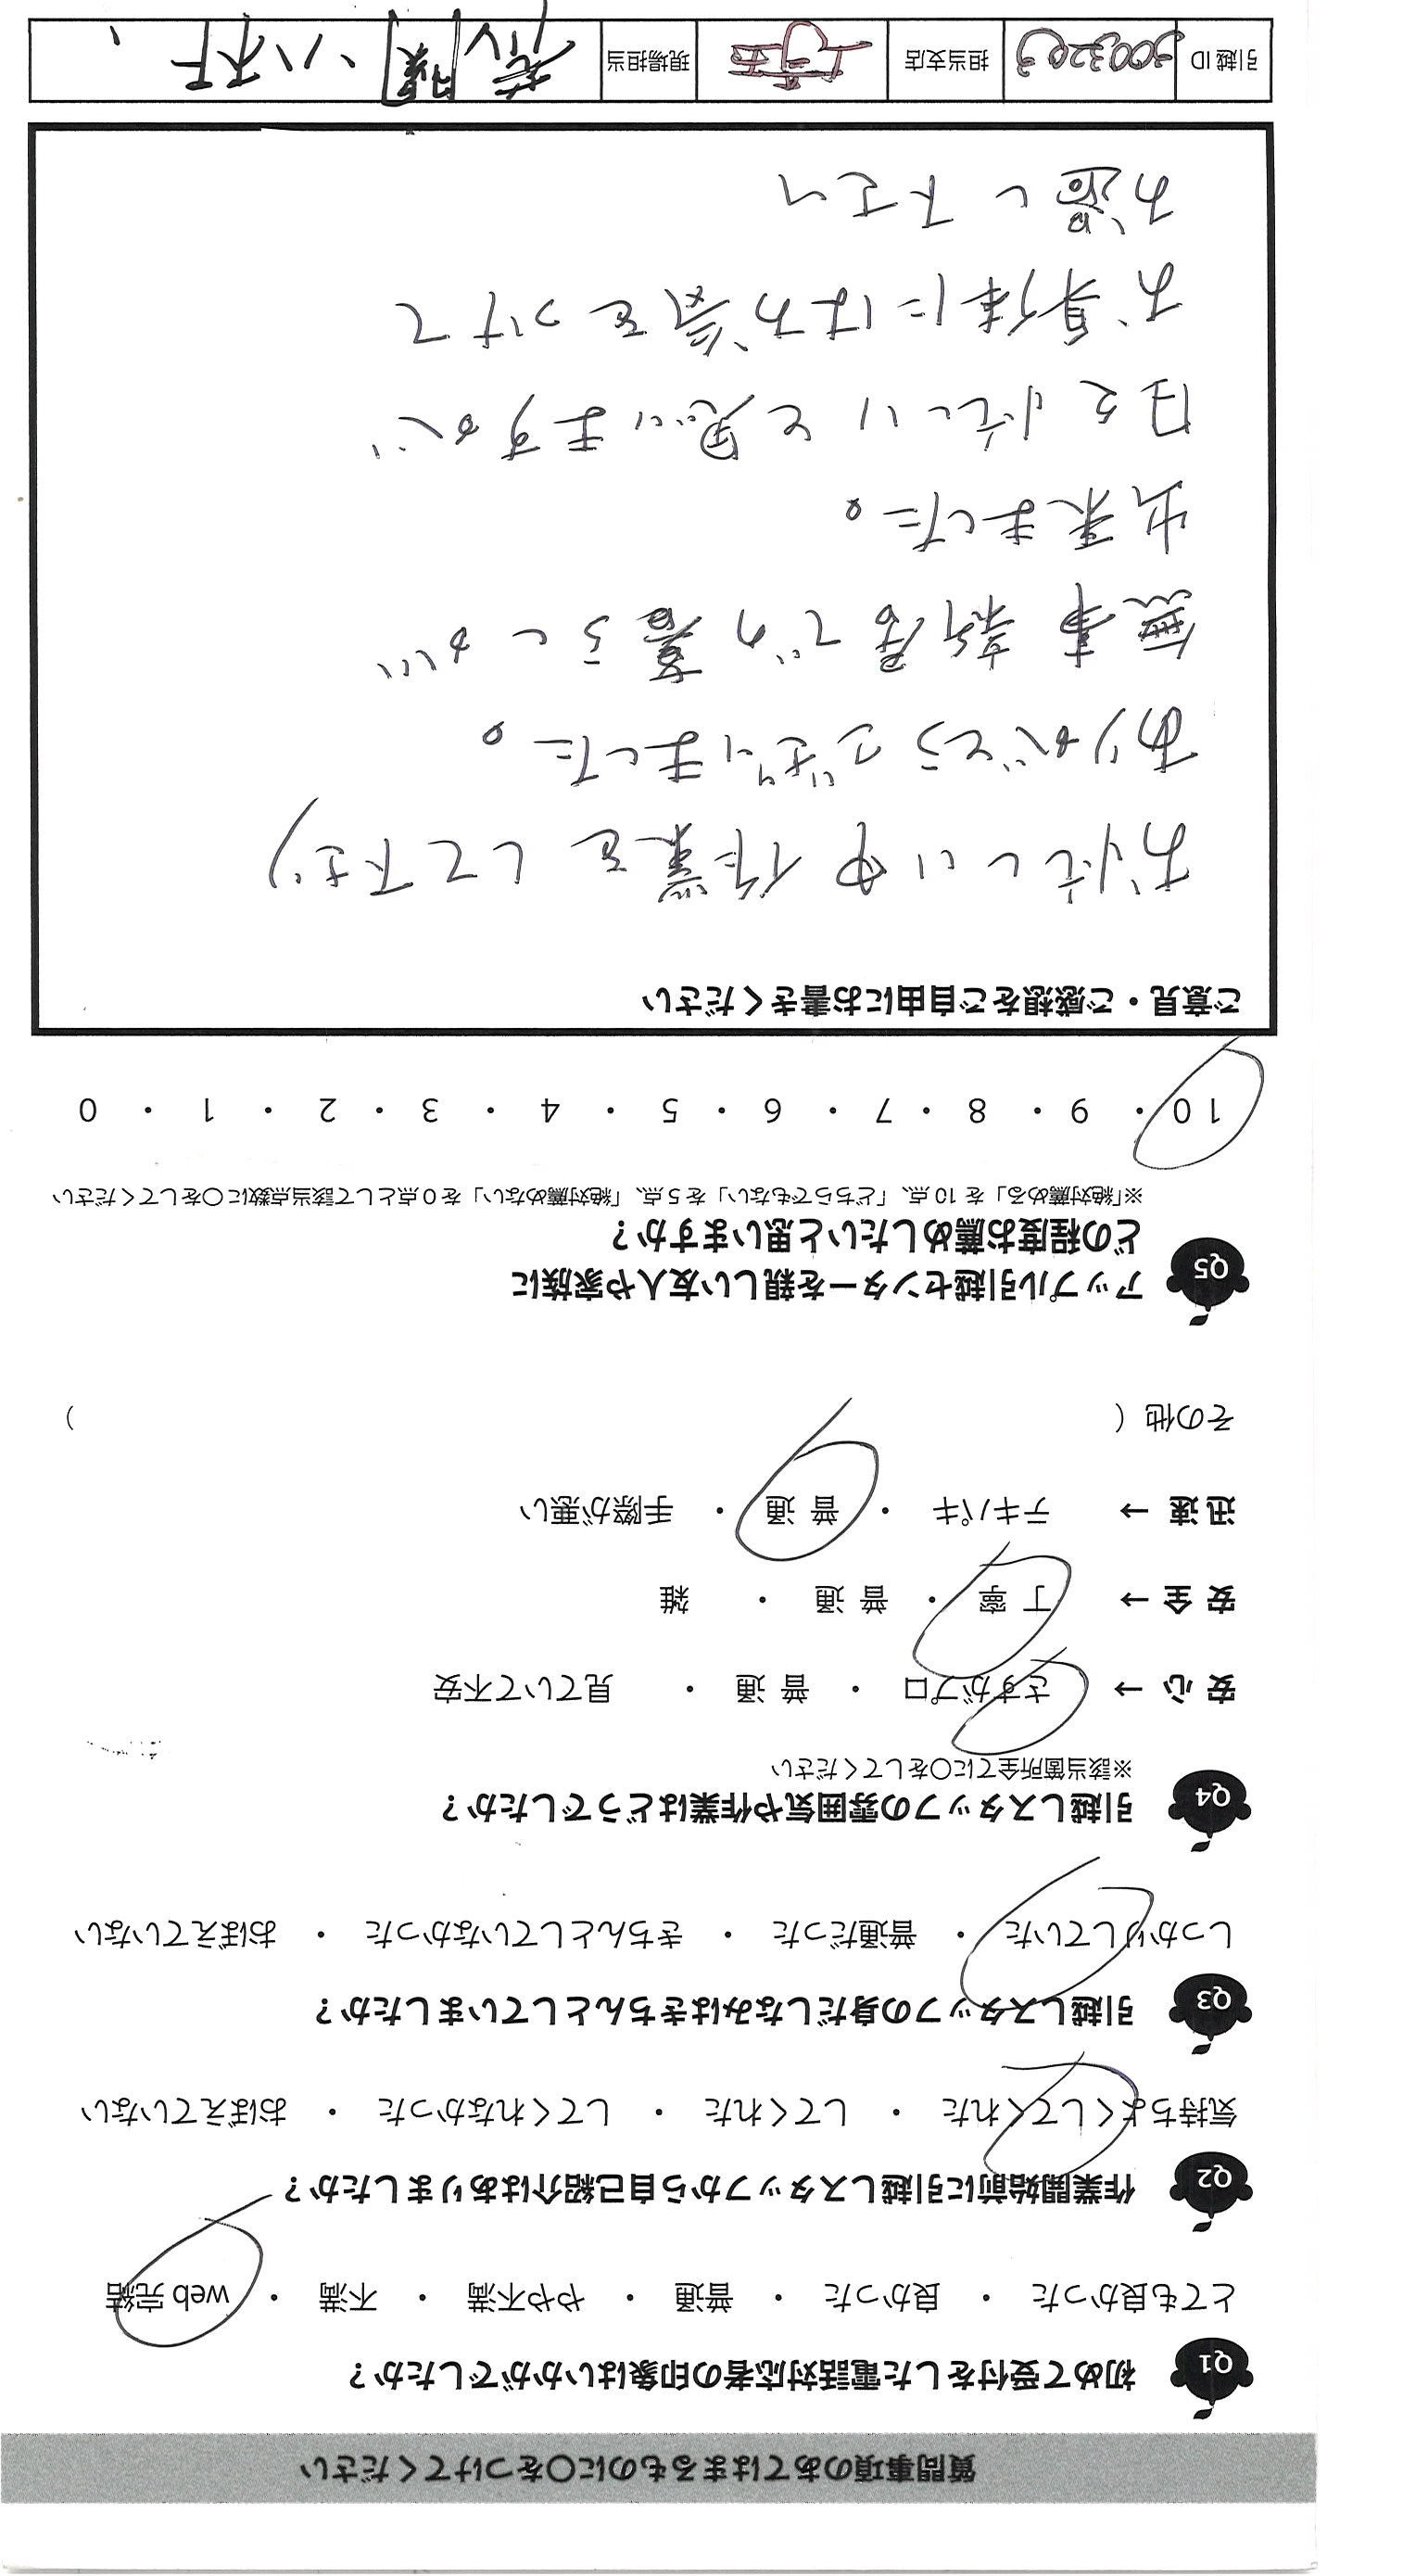 質問事項のあてはまるものに〇をつけてください
Q1 初めて受付をした電話対応者の印象はいかがでしたか？
とても良かった ・ 良かった ・ 普通 ・ やや不満 ・ 不満 ・ web 完結
Q2 作業開始前に引越しスタッフから自己紹介はありましたか？
気持ちよくしてくれた ・ してくれた ・ してくれなかった ・ おぼえていない
Q3 引越しスタッフの身だしなみはきちんとしていましたか？
しっかりしていた ・ 普通だった ・ きちんとしていなかった ・ おぼえていない
Q4 引越しスタッフの雰囲気や作業はどうでしたか？
※該当箇所全てに〇をしてください
安 心 → さすがプロ ・ 普 通 ・ 見ていて不安
安 全 → 丁 寧 ・ 普 通 ・ 雑
迅 速 → テキパキ ・ 普 通 ・ 手際が悪い
その他（ ）
Q5 アップル引越センターを親しい友人や家族に
どの程度お薦めしたいと思いますか？
※「絶対薦める」を 10 点、「どちらでもない」を 5 点、「絶対薦めない」を 0 点として該当点数に〇をしてください
10 ・ 9 ・ 8 ・ 7 ・ 6 ・ 5 ・ 4 ・ 3 ・ 2 ・ 1 ・ 0
ご意見・ご感想をご自由にお書きください
お忙しい中作業をして下さり
ありがとうございました。
無事新居でお暮らしが
出来ました。
日々忙しいと思いますが
お身体にはお気をつけて
お過し下さい
引越 ID 3003203 担当支店 現場担当